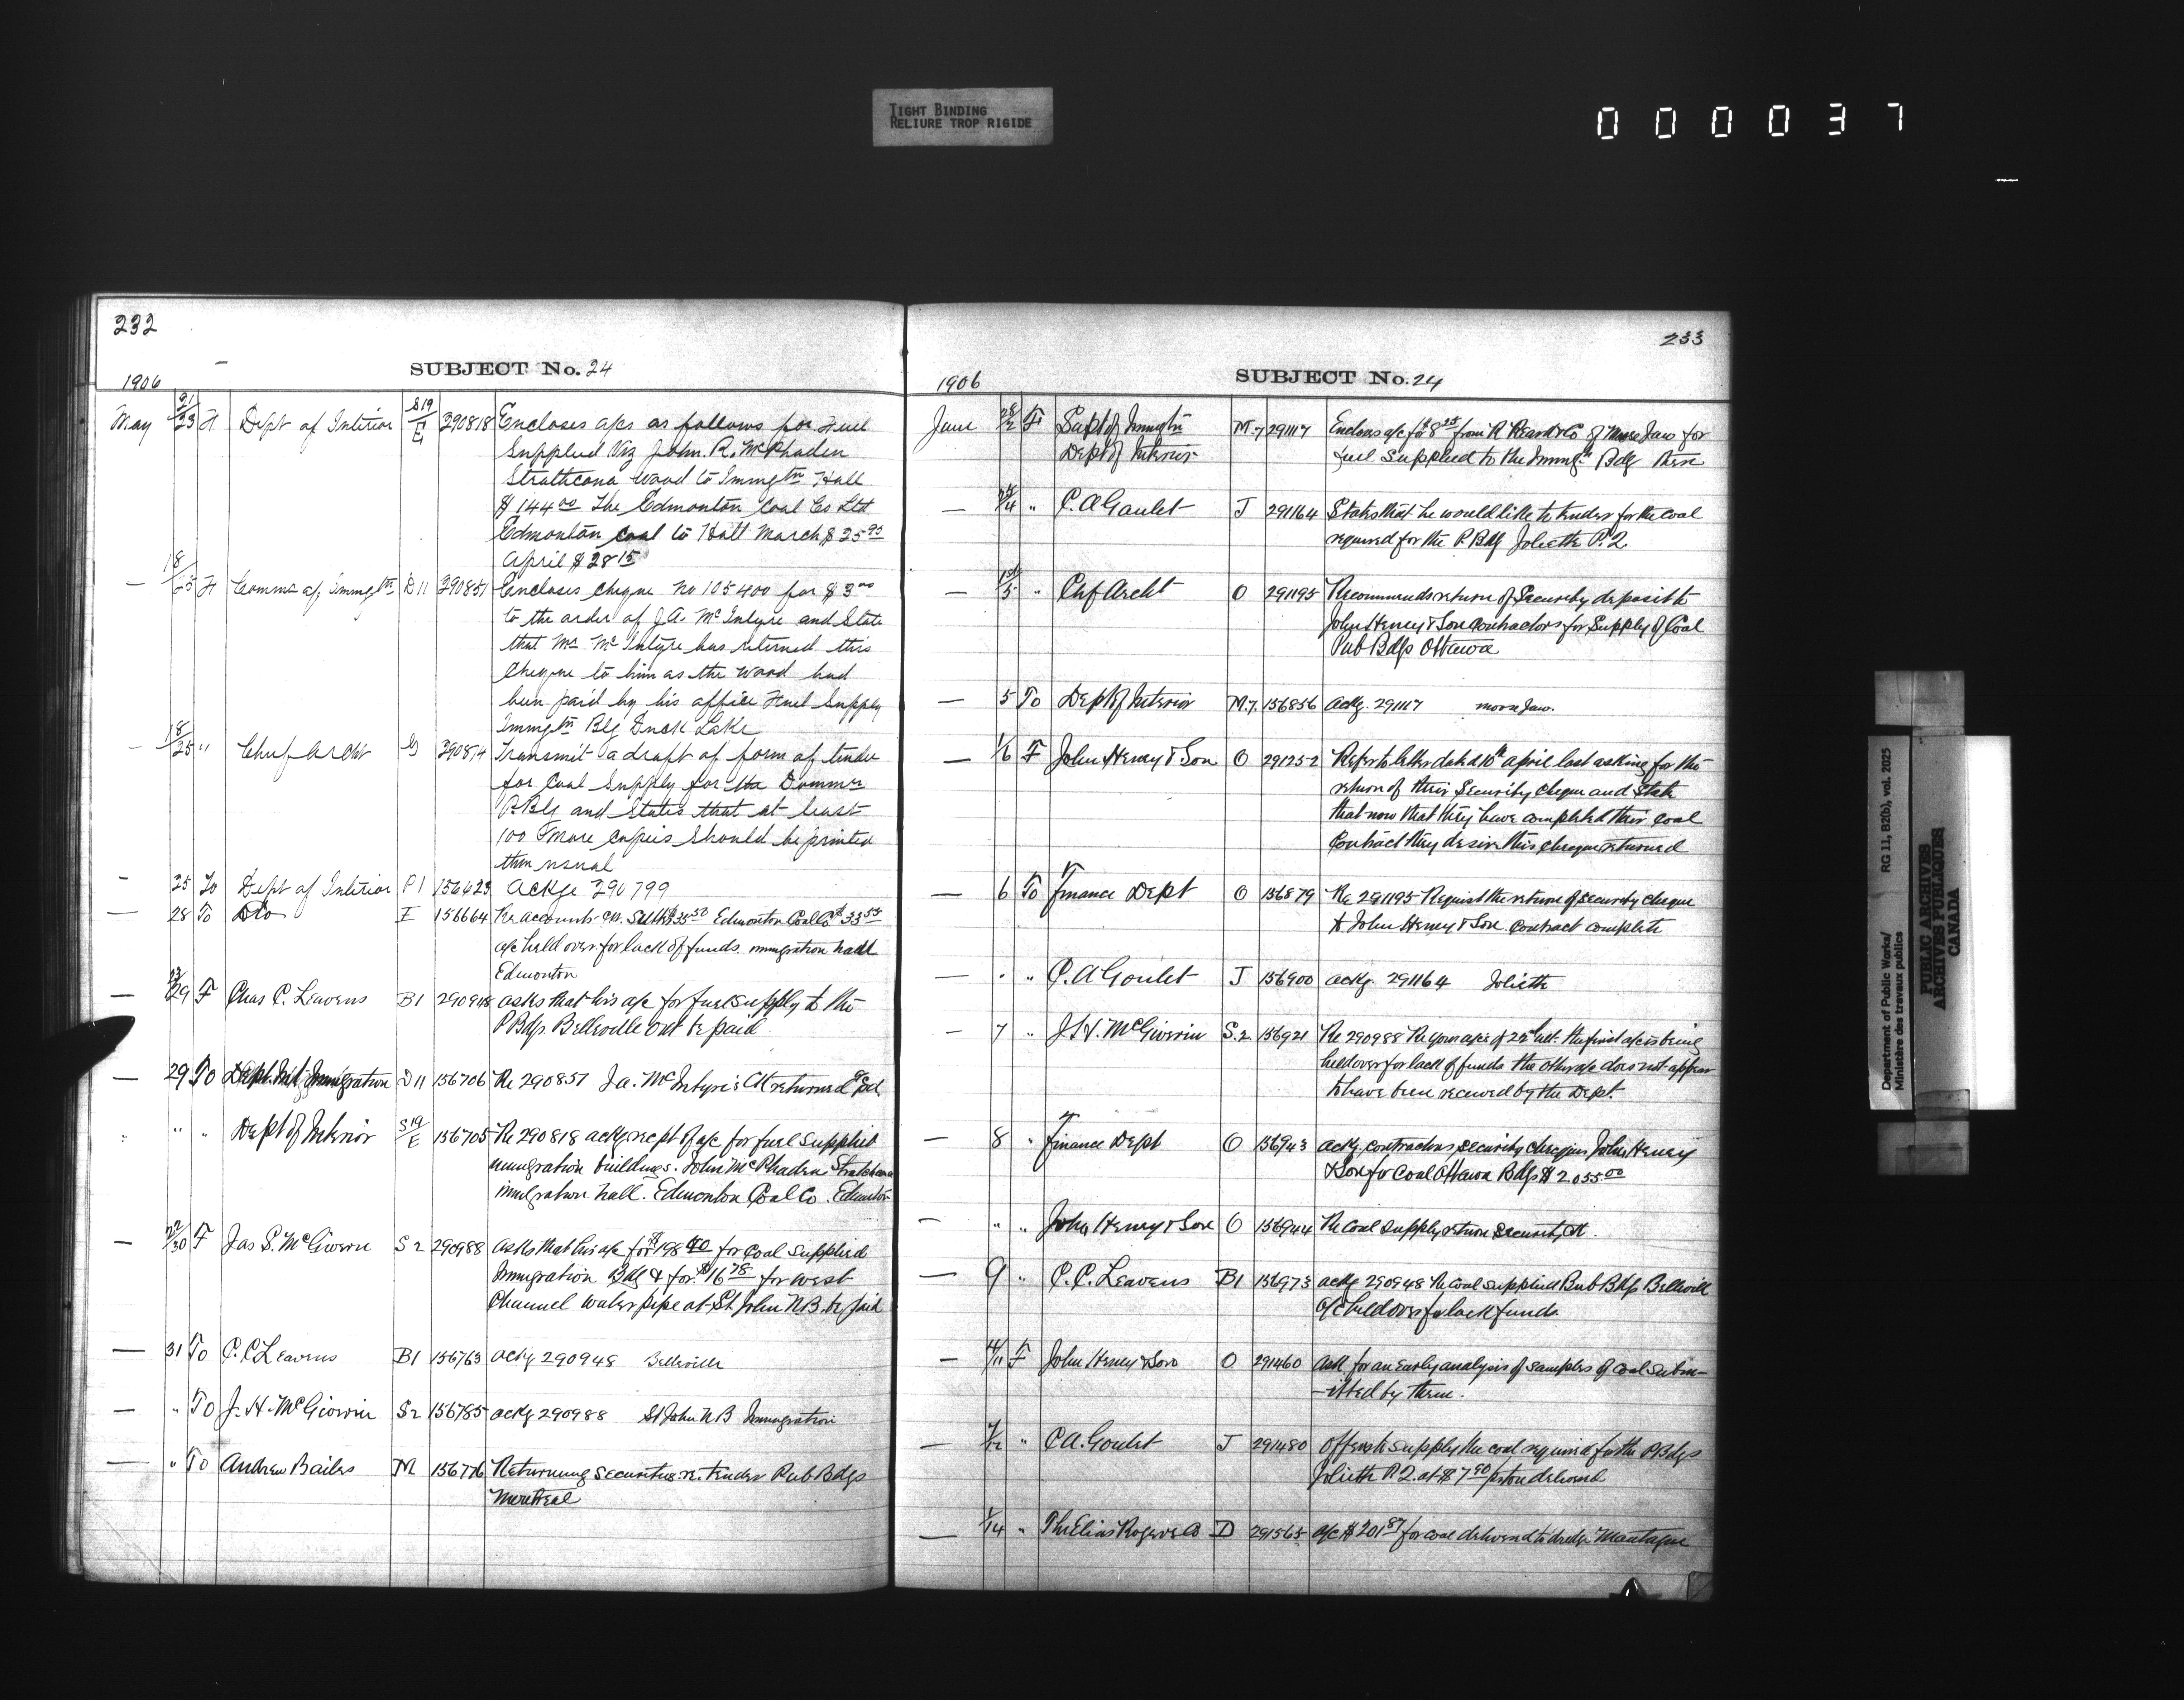 TIGHT BINDING
RELIURE TROP RIGIDE
000037
232
SUBJECT No. 24
1906
May 21/23 F Dept of Interior S19/E 290818 Encloses a/cs as follows for Fuel
Supplied Viz John R. McPhaden
Strathcona wood to Immgtn Hall
$144 00 The Edmonton Coal Co Ltd
Edmonton Coal to Hall March $25 95
April $28 15
— 18/25 F Commr of Immgtn D11 290851 Encloses cheque No 105400 for $3 00
to the order of J.A. McIntyre and State
that Mr McIntyre has returned this
cheque to him as the wood had
been paid by his office Fuel Supply
Immgtn Blg Duck Lake
— 18/25 " Chief Archt G 290874 Transmits a draft of form of tender
for Coal Supply for the Dominn
P. Blg and States that at least
100 more copies should be printed
than usual
- 25 To Dept of Interior P1 156423 Ackge 290799
— 28 To Do E 156664 Re accounts $35 50 Edmonton Coal Co $33 55
a/c held over for lack of funds. immigration hall
Edmonton
— 23/29 F Chas C. Leavens B1 290948 asks that his a/c for fuel supply to the
P Bdgs Belleville Ont be paid
— 29 To Dept. Immigration D11 156706 Re 290851 J.a. McIntyre's Ck returned
" " Dept of Interior S19/E 156705 Re 290818 ackg recpt of a/c for fuel supplied
immigration buildings. John McPhaden Strathcona
immigration hall. Edmonton Coal Co. Edmonton
— 22/30 F Jas S. McGivern S2 290988 asks that his a/c for $198 40 for coal supplied
Immigration Bdg & for $16 78 for west
Channel water pipe at St John N.B. be paid
— 31 To C.C Leavens B1 156763 ackg 290948 Belleville
— " To J. H. McGiverin S2 156785 ackg 290988 St John N B Immigration
— " To Andrew Bailes M 156776 Returning securities re. tender Pub Bdgs
Montreal
233
1906
SUBJECT No. 24
June 28/2 F Supt of Immgtn
Dept of Interior M.7 291117 Encloses a/c for $8 25 from R Beard & Co of Moose Jaw for
fuel supplied to the Immgtn Bdg there
— " C. A Goulet J 291164 States that he would like to tender for the coal
required for the P. Bdg Joliette P.Q.
— 1st/5 " Chf Archt O 291195 Recommends return of Security deposit to
John Henry & Son contractors for Supply of Coal
Pub Bdgs Ottawa
— 5 To Dept of Interior M.7. 156856 Ackg. 291117 moose Jaw.
— 1/6 F John Henry & Son O 291252 Refers to letter dated 10th april last asking for the
return of their Security cheque and State
that now that they have completed their coal
contract they desire this cheque returned
— 6 To Finance Dept O 156879 Re 291195 Request the return of security cheque
to John Henry & Son. contract complete
— " " C. A Goulet J 156900 ackg. 291164 Joliette
— 7 " J. H. McGiverin S.2. 156921 Re 290988 Re your a/cs of 22nd ult. the first a/c is being
held over for lack of funds the other a/c does not appear
to have been received by the Dept.
— 8 " Finance Dept O 156943 ackg. contractors security cheques John Henry
& Son for Coal Ottawa Bdgs $2.055.00
— " " John Henry & Son O 156944 Re Coal supply return security ck.
— 9 " C. C. Leavens B1 156973 ackg 290948 Re coal supplied Pub Bdgs Belleville
a/c held over for lack funds.
— 4/11 F John Henry & Son O 291460 Ask for an early analysis of samples of coal subm-
-itted by them.
— 7/12 " C A. Goulet J 291480 Offers to supply the coal required for the P Bdgs
Joliette P.Q. at $7 90 per ton delivered
— 1/14 " The Elias Rogers Co D 291565 a/c $201 87 for coal delivered to dredge Montague
Department of Public Works/
Ministère des travaux publics
RG 11, B2(b), vol. 2025
PUBLIC ARCHIVES
ARCHIVES PUBLIQUES
CANADA